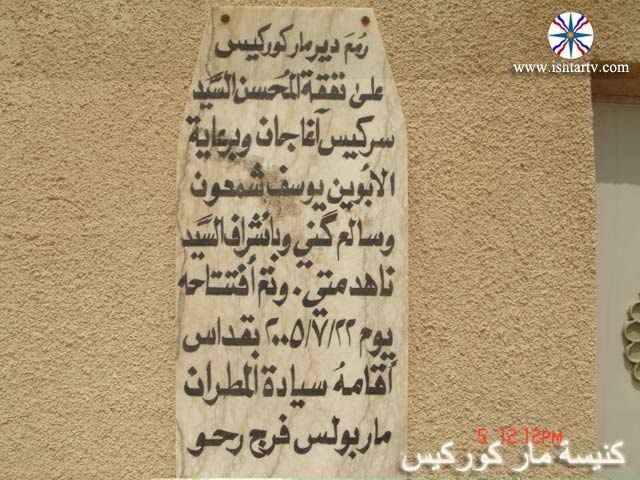 www.ishtartv.com
رُمِمَ دير مار كوركيس
على نفقة المُحسن السَّيد
سركيس آغا جان وبرعاية
الأبوين يوسف شمعون
وسالم گني وبأشراف السَّيد
ناهد متي . وتم أفتتاحه
يوم ٢٠٠٥/٧/٢٢ بقداس
أقامهُ سيادة المطران
مار بولس فرج رحو
5 12:12PM
كنيسة مار كوركيس